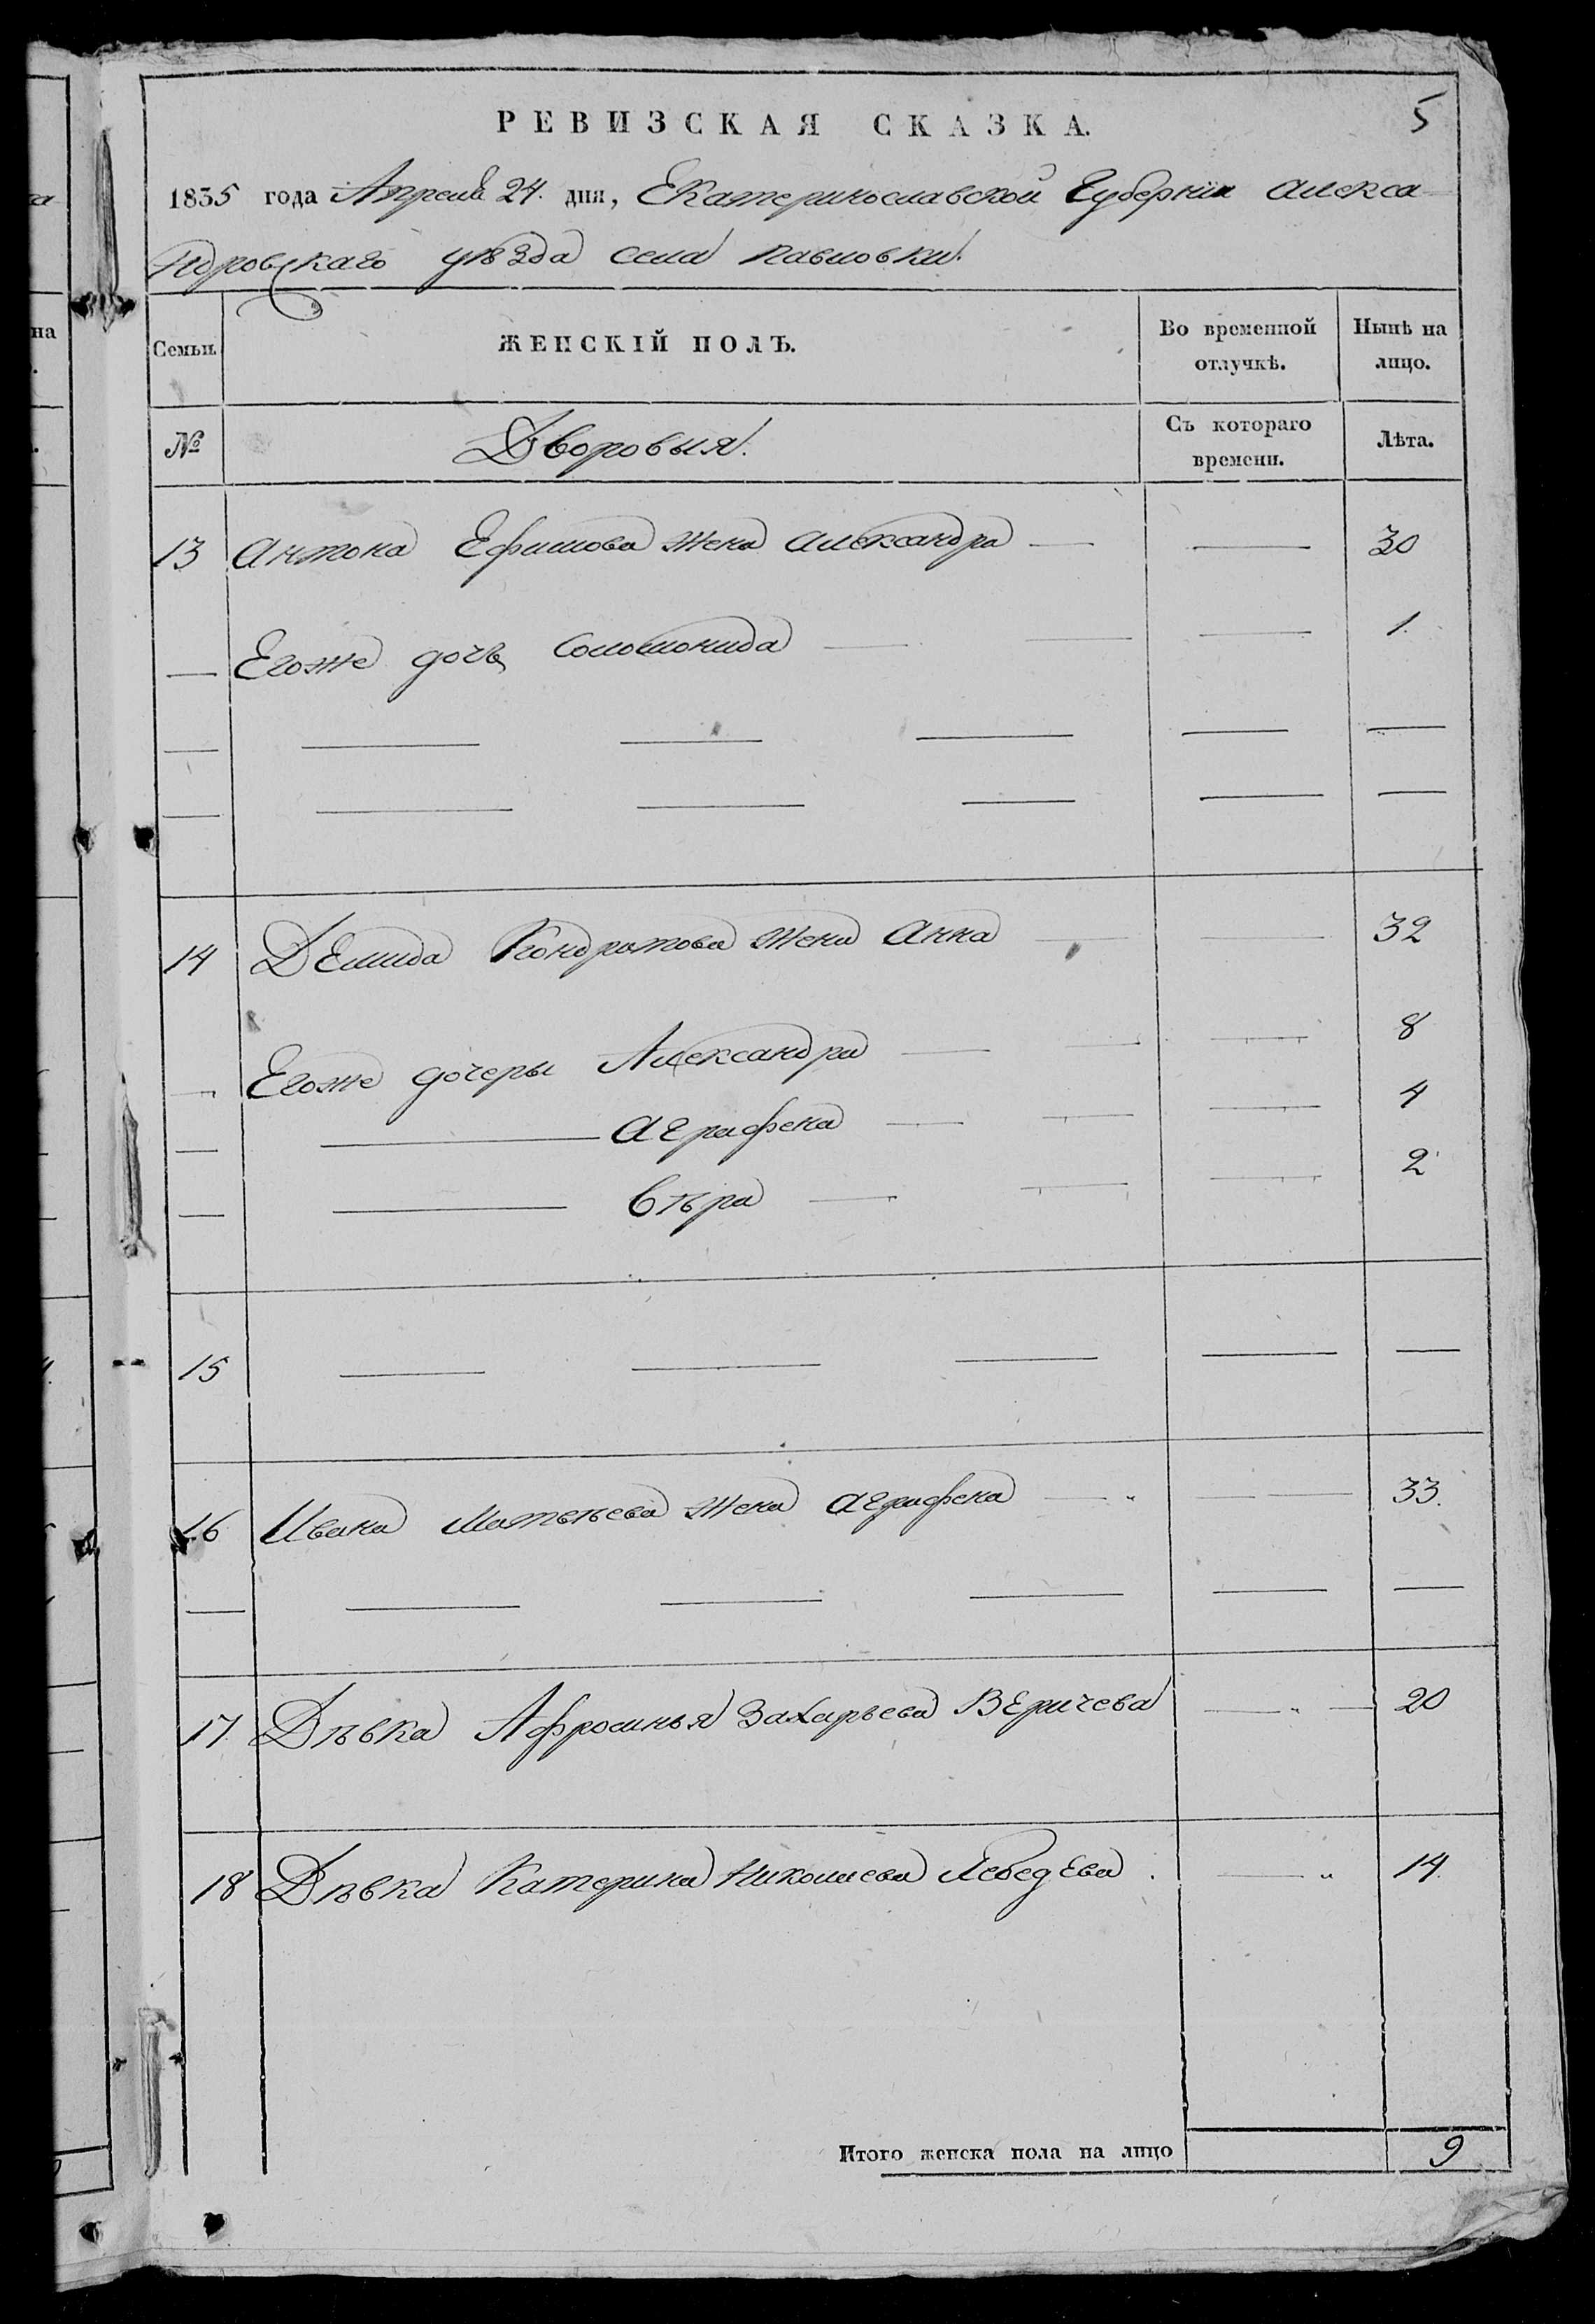 РЕВИЗСКАЯ СКАЗКА.
5
1835 года Апреля 24. дня, Екатеринославской Губерніи Алекса
ндровскаго уѣзда села Павловки.
Семьи. ЖЕНСКІЙ ПОЛЪ. Во временной отлучкѣ. Нынѣ на лицо.
№ Дворовыя. Съ котораго времени. Лѣта.
13 Антона Ефимова жена Александра — — 30
— Егоже дочь Соломонида — — — 1.
14 Демида Кондратова жена Анна — — 32
— Егоже дочеры Александра — — — 8
— — Аграфена — — — 4
— — Вѣра — — — 2
15 — — — — —
16 Ивана Матвѣева жена Аграфена — — 33.
17 Дѣвка Афросинья Захарьева Веричева — 20
18 Дѣвка Катерина Николаева Лебедева. — 14.
Итого женска пола на лицо 9
на